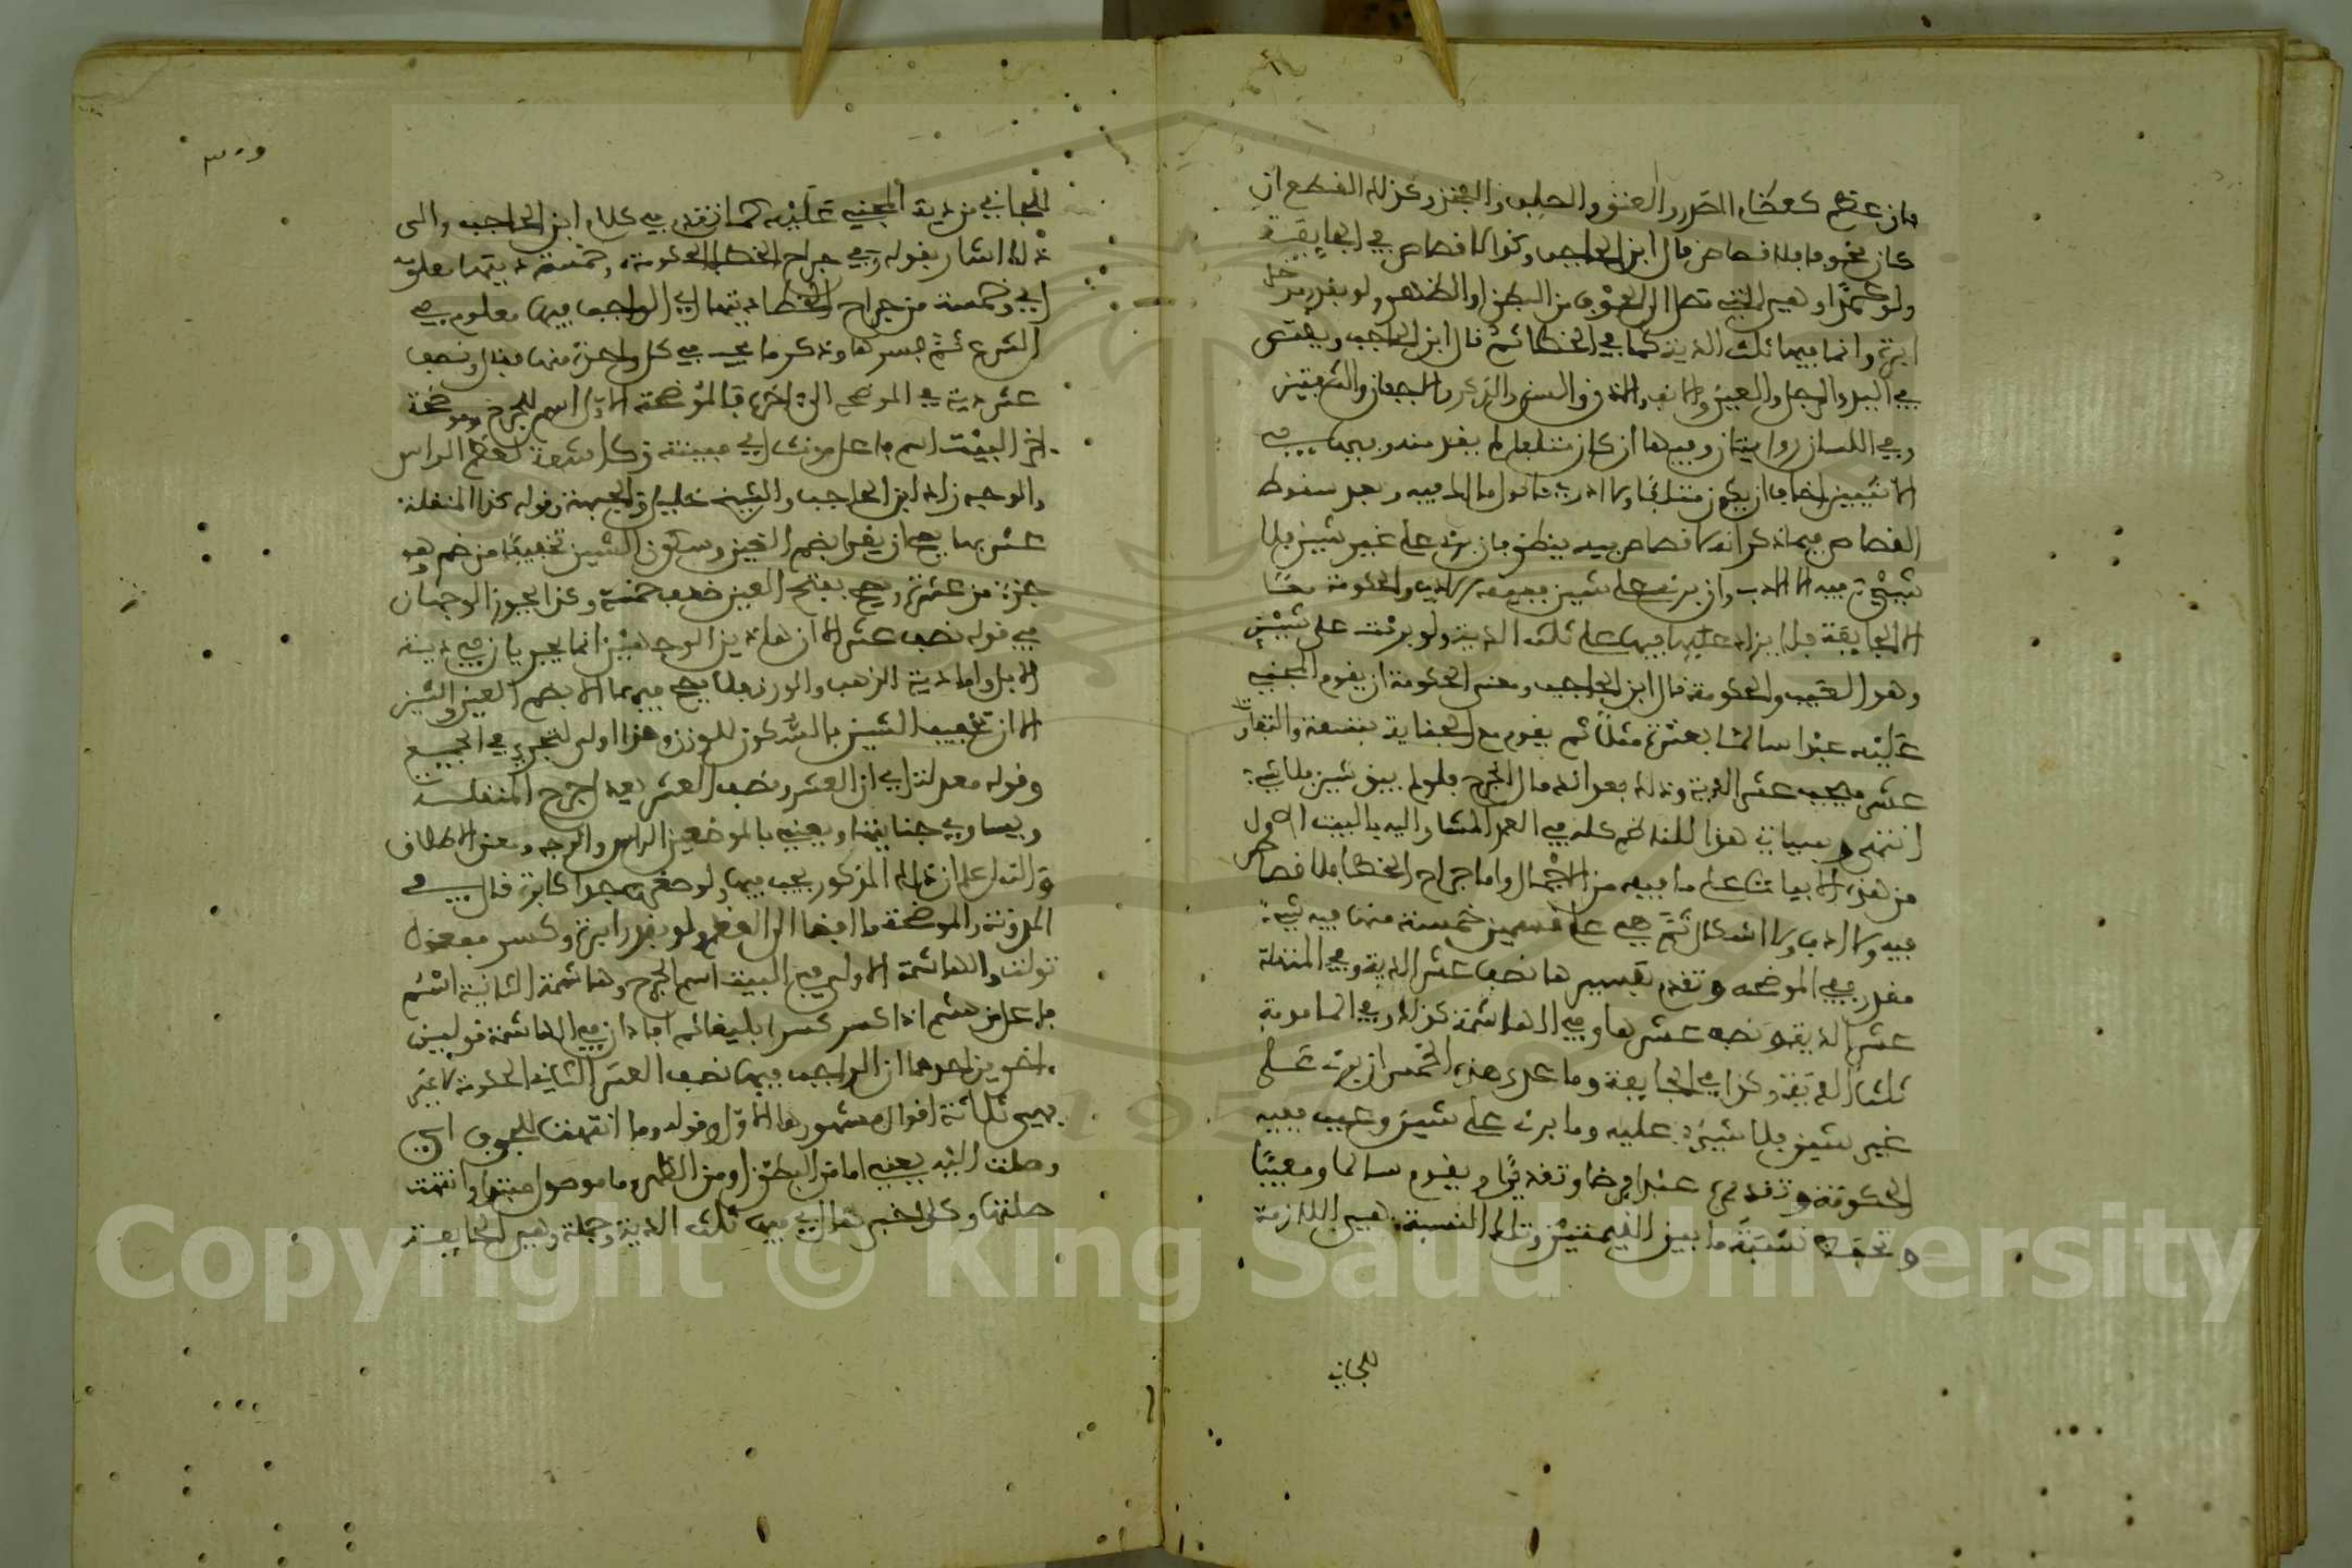 فإن عظم كعظام الصدر والعنق والصلب والفخذ وكذلك القطع إن
كان مخوفا فلا قصاص قال ابن الحاجب وكذا لا قصاص في الجائفة
ولو عمدا وهي التي تصل إلى الجوف من البطن أو الظهر ولو بقدر مدخل
إبرة وإنما فيها ثلث الدية كما في الخطأ ثم قال ابن الحاجب ويقتص
في اليد والرجل والعين والأنف والأذن والسن والذكر والأجفان والشفتين
وفي اللسان روايتان وفيها إن كان متلفا لم يقد منه وفيها في
الأنثيين أخاف أن يكون متلفا ولا أدري ما قول مالك فيه وبعد سقوط
القصاص فيما ذكر أنه لا قصاص فيه ينظر فإن برئ على غير شين فلا
شيء فيه إلا الأدب وإن برئ على شين ففيه الأدب والحكومة
إلا الجائفة فلا يزاد عليها فيها على ثلث الدية ولو برئت على شين
وهو العيب والحكومة قال ابن الحاجب ومعنى الحكومة أن يقوم المجني
عليه عبدا سالما بعشرة مثلا ثم يقوم مع الجناية بتسعة والتفاوت
عشر فيجب عشر الدية وذلك بعد اندمال الجرح فلو لم يبق شين فلا شيء
انتهى وسيأتي هذا للناظم كله في العمد المشار إليه بالبيت الأول
من هذه الأبيات على ما فيه من الإجمال وأما جراح الخطأ فلا قصاص
فيه ولا أدب ولا إشكال ثم هي على قسمين خمسة منها فيه شيء
مقدر ففي الموضحة وتقدم تفسيرها نصف عشر الدية وفي المنقلة
عشر الدية ونصف عشرها وفي الهاشمة كذلك وفي المامومة
ثلث الدية وكذا في الجائفة وما عدا هذه الخمس إن برئ على
غير شين فلا شيء عليه وما برئ على شين وعيب ففيه
الحكومة وتقدم عبدا فرضا وتقديرا ويقوم سالما ومعيبا
وتحفظ نسبة ما بين القيمتين وتلك النسبة هي اللازمة
للجاني
للجاني من دية المجني عليه كما تقدم في كلام ابن الحاجب وإلى
ذلك أشار بقوله وفي جراح الخطأ الحكومة وخمسة ديتها معلومة
أي وخمسة من جراح الخطأ ديتها أي الواجب فيها معلوم في
الشرع ثم فسرها وذكر ما يجب في كل واحدة منها فقال ونصف
عشر دية في الموضحة إلى آخره فالموضحة الأول اسم للجرح وموضحة
آخر البيت اسم فاعل مؤنث أي مبينة وكاشفة لعظم الرأس
والوجه زاد ابن الحاجب والشيخ خليل والجبهة وقوله كذا المنقلة
عشر بها يصح أن يقرأ بضم العين وسكون الشين تخفيفا من ضم هو
جزء من عشرة ويصح بفتح العين خمسة وكذا يجوز الوجهان
في قوله نصف عشر إلا أن هذين الوجهين إنما يجريان في دية
الإبل وأما دية الذهب والورق فلا يصح فيهما إلا بضم العين والشين
إلا أن تخفيف الشين بالسكون للوزن وهذا أولى لتجري في الجميع
وقوله معدلة أي أن العشر ونصف العشر يعدل جرح المنقلة
ويساوي جنايتها ويعني بالموضعين الرأس والوجه ومعنى الإطلاق
والله أعلم أن ذلك المذكور يجب فيها ولو صغرت جدا كإبرة قال في
المدونة والموضحة ما أفضى إلى العظم ولو بقدر إبرة وكسر مفعول
تولت والهاشمة الأولى في البيت اسم الجرح وهاشمة الثانية اسم
فاعل من هشم إذا كسر كسرا بليغا ثم أفاد أن في الهاشمة قولين
أخيرين أحدهما أن الواجب فيها نصف العشر الثاني الحكومة لا غير
فهي ثلاثة أقوال مشهورها الأول وقوله وما انتهت للجوف أي
وصلت إليه يعني إما من البطن أو من الظهر وما موصول مبتدأ وانتهت
صلتها وكل خبر تعالى فيها ثلث الدية وجملة وهي الجائفة